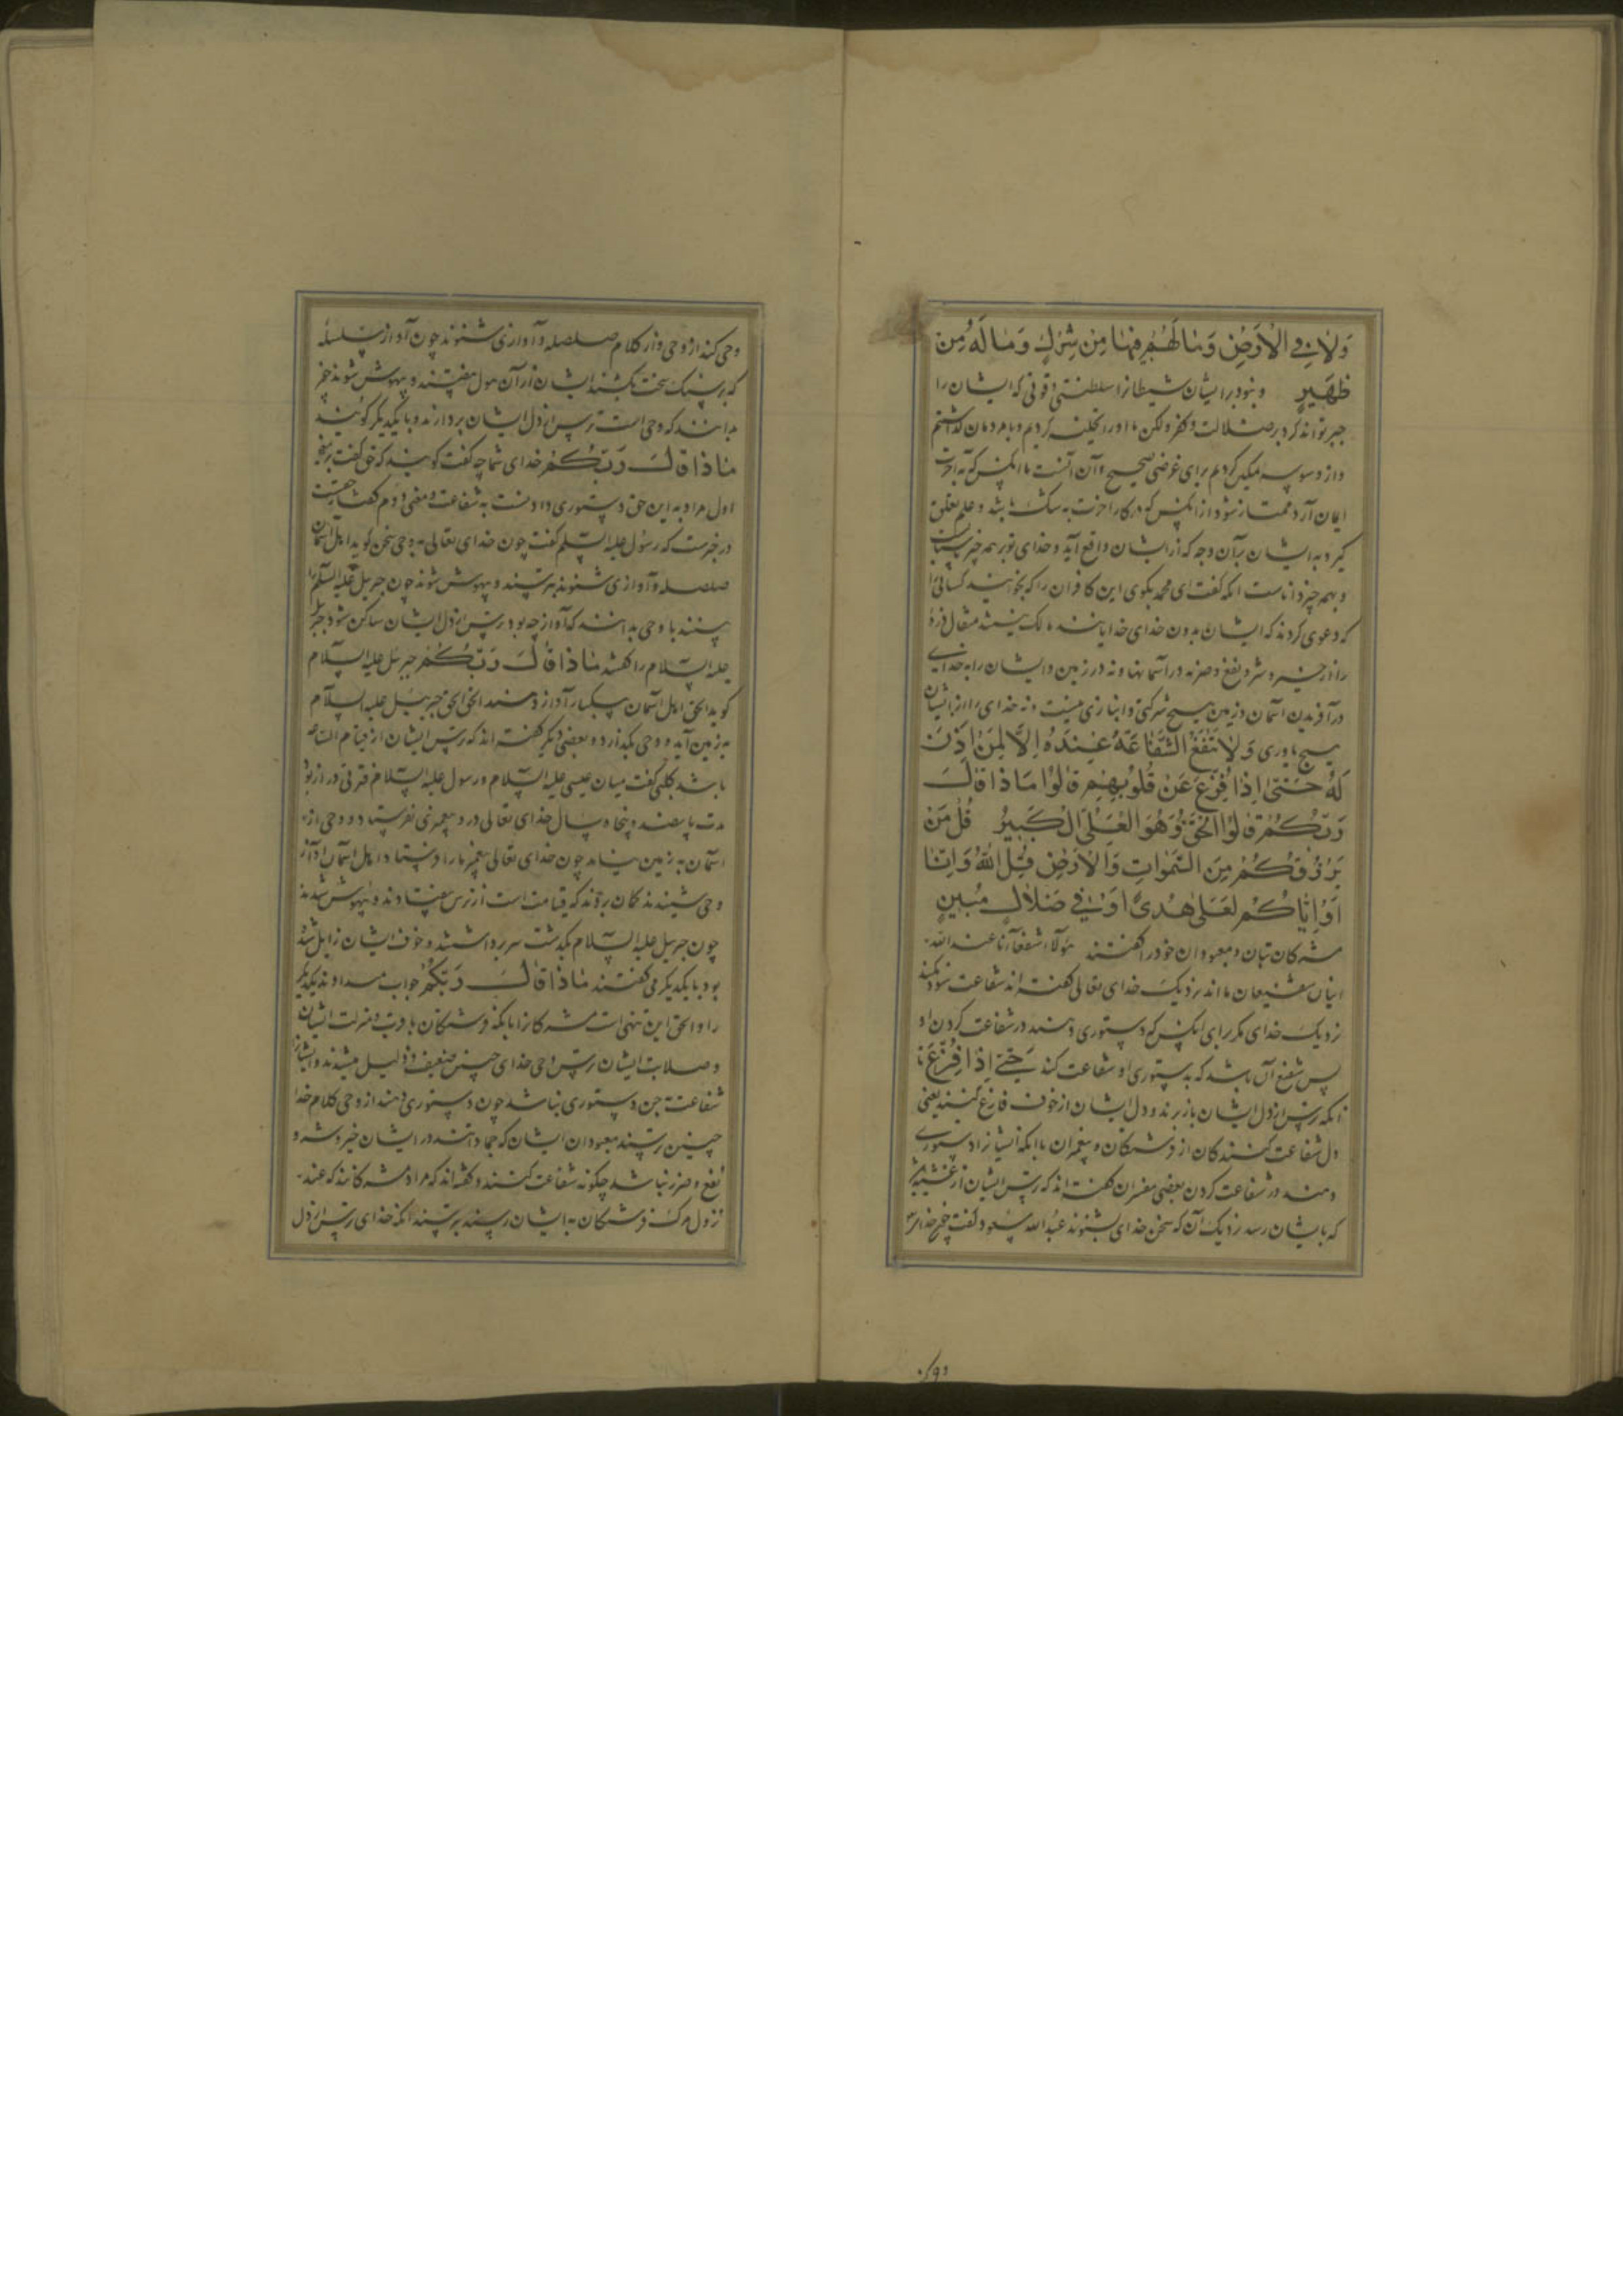 وَلَا فِي الْأَرْضِ وَمَا لَهُمْ فِيهِمَا مِنْ شِرْكٍ وَمَا لَهُ مِنْ
ظَهِيرٍ و نبود بر ایشان شیطانرا سلطنتی و قوتی که ایشان را
جبر تواند کرد بر ضلالت و کفر ولکن ما او را تخلیه کردیم و با مردمان گذاشتیم
و از وسوسه تمکین کردیم برای غرضی صحیح و آن آنست تا آنکس که به آخرت
ایمان آرد ممتاز شود از آنکس که در کار آخرت به شک باشد و علم تعلق
گیرد به ایشان بر آن وجه که از ایشان واقع آید و خدای تو بر همه چیز
و بهمه چیز داناست آنگه گفت ای محمد بگوی این کافران را که بخوانید کسانی را
که دعوی کردند که ایشان بدون خدای خدایانند مالک نیند مثقال ذره
را از خیر و شر و نفع و ضر نه در آسمانها و نه در زمین و ایشان را به خدای
در آفریدن آسمان و زمین هیچ شرکتی و انبازی نیست و نه خدای را از ایشان
هیچ یاوری وَلَا تَنْفَعُ الشَّفَاعَةُ عِنْدَهُ إِلَّا لِمَنْ أَذِنَ
لَهُ حَتَّى إِذَا فُزِّعَ عَنْ قُلُوبِهِمْ قَالُوا مَاذَا قَالَ
رَبُّكُمْ قَالُوا الْحَقَّ وَهُوَ الْعَلِيُّ الْكَبِيرُ قُلْ مَنْ
يَرْزُقُكُمْ مِنَ السَّمَوَاتِ وَالْأَرْضِ قُلِ اللَّهُ وَإِنَّا
أَوْ إِيَّاكُمْ لَعَلَى هُدًى أَوْ فِي ضَلَالٍ مُبِينٍ
مشرکان بتان و معبودان خود را گفتند هؤلاء شفعاؤنا عند الله
اینان شفیعان ما اند نزدیک خدای تعالی گفته اند شفاعت سود نکند
نزدیک خدای مگر برای آنکس که دستوری دهند در شفاعت کردن او
پس شفیع آن باشد که به دستوری او شفاعت کند حَتَّى إِذَا فُزِّعَ تا
آنگه ترس از دل ایشان باز برند و دل ایشان از خوف فارغ کنند یعنی
دل شفاعت کنندگان از فرشتگان و پیغمبران تا آنگه ایشانرا دستوری
دهند در شفاعت کردن بعضی مفسران گفته اند که ترس ایشان از غشیتی
که بایشان رسد نزدیک آن که سخن خدای بشنوند عبد الله مسعود گفت چون خدای
وحی کند از وحی و از کلام صلصله و آوازی شنوند چون آواز سلسله
که بر سنگ سخت بکشند ایشان از آن هول بیفتند و بیهوش شوند چون
بدانند که وحی است ترس از دل ایشان بردارند و با یکدیگر گویند
مَاذَا قَالَ رَبُّكُمْ خدای شما چه گفت گویند که حق گفت بر معنی
اول مراد به این حق دستوری دادنست به شفاعت و معنی دوم گفت
در خبرست که رسول علیه السلم گفت چون خدای تعالی به وحی سخن گوید اهل آسمان
صلصله و آوازی شنوند بترسند و بیهوش شوند چون جبریل علیه السلم را
بینند با وحی بدانند که آواز چه بود ترس از دل ایشان ساکن شود جبریل
علیه السلام را گفتند مَاذَا قَالَ رَبُّكُمْ جبرئیل علیه السلام
گوید الحق اهل آسمان بیکبار آواز دهند الحق الحق جبرئیل علیه السلام
به زمین آید و وحی بگذارد و بعضی دیگر گفته اند که ترس ایشان از قیام الساعه
باشد کلبی گفت میان عیسی علیه السلام و رسول علیه السلام فترتی دراز بود
مدت پانصد و پنجاه سال خدای تعالی در او پیغمبری نفرستاد و وحی از
آسمان به زمین نیامد چون خدای تعالی پیغمبر ما را فرستاد اهل آسمان آواز
وحی شنیدند گمان بردند که قیامت است از ترس بیفتادند و بیهوش شدند
چون جبریل علیه السلام بگذشت سر برداشتند و خوف ایشان زایل شده
بود با یکدیگر می گفتند مَاذَا قَالَ رَبُّكُمْ جواب میدادند یکدیگر
را و الحق این تنبیهی است مشرکانرا بانکه فرشتگان با رتبت و منزلت ایشان
و صلابت ایشان ترس وحی خدای چنین ضعیف و ذلیل میشدند و ایشانرا
شفاعت جز به دستوری نباشد چون دستوری دهند از وحی کلام خدا
چنین ترسند معبودان ایشان که جمادانند در ایشان خیر و شر و
نفع و ضرر نباشد چگونه شفاعت کنند و گفته اند که مراد مشرکانند که عند
نزول مرگ فرشتگان به ایشان رسند بترسند آنگه خدای ترس از دل